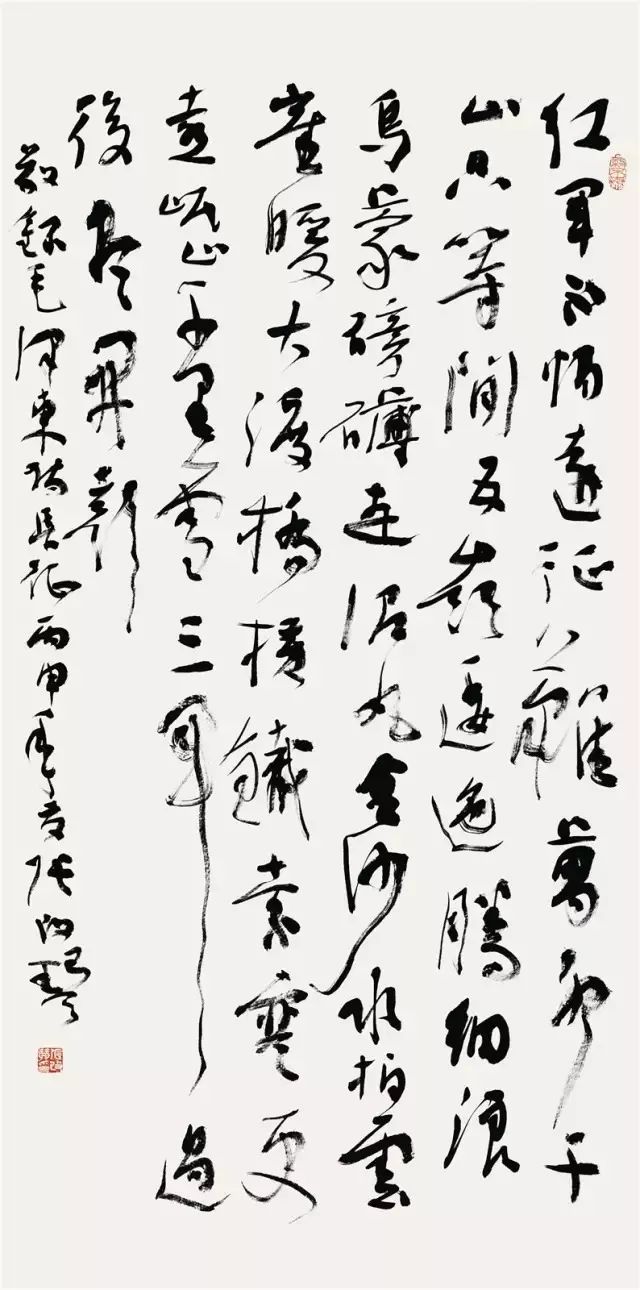 紅軍不怕遠征難萬水千
山只等閒五嶺逶迤騰細浪
烏蒙磅礴走泥丸金沙水拍雲
崖暖大渡橋橫鐵索寒更
喜岷山千里雪三軍過
後盡開顏
敬錄毛澤東詩長征丙申年夏張改琴